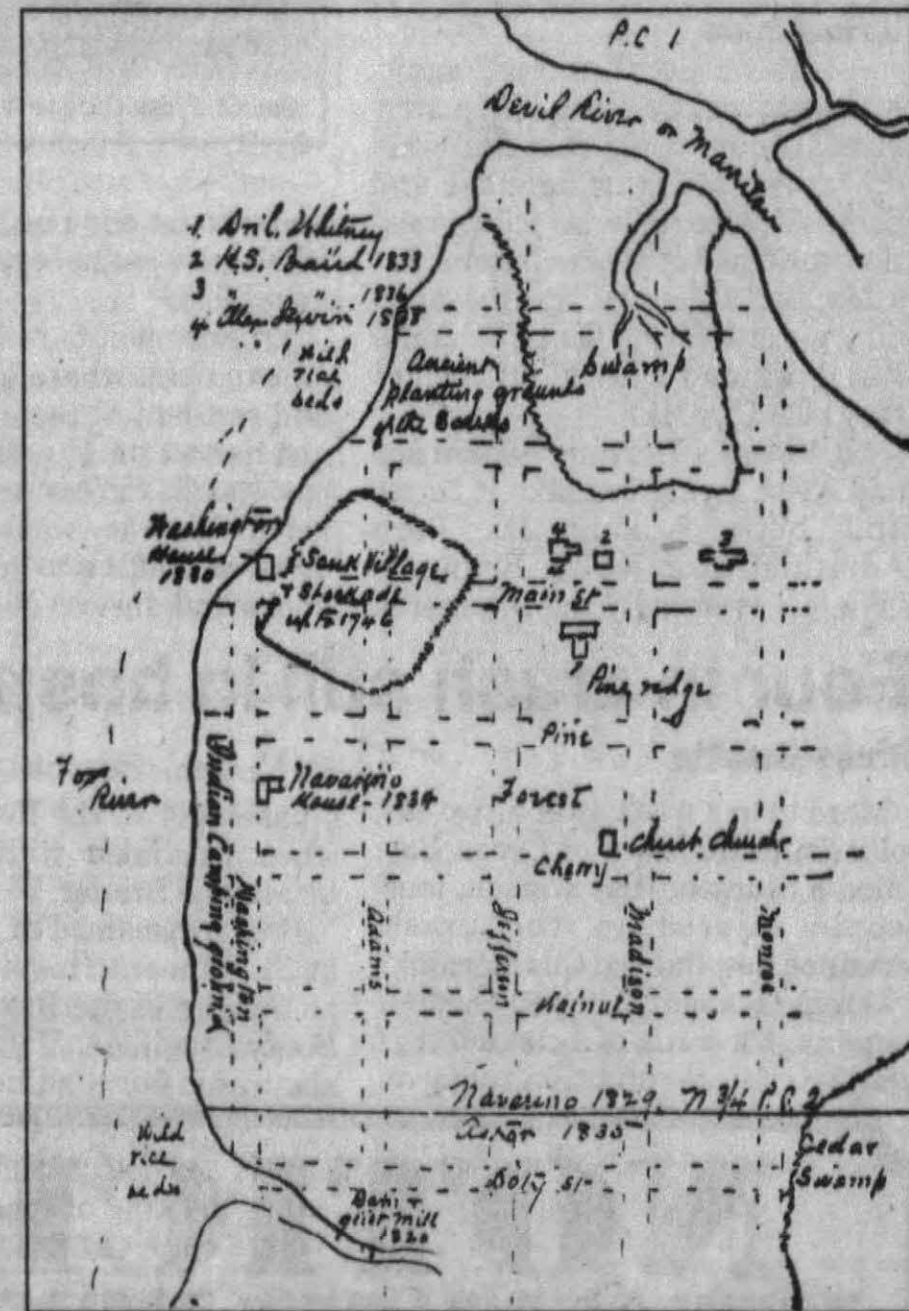 P.C 1
Devil River or Manitou
1 Dnl. Whitney
2 H.S. Baird 1833
3 " " 1836
4 Alex Irwin 18
Wild
rice
beds
Ancient
Planting grounds
of the
Swamp
Washington
House
1830
Sauk Village
& Stockade
up to 1746
4
2
3
Main St
1
Pine ridge
Pine
Fox
River
Navarino
House - 1834
Forest
Christ Church
Cherry
Indian Camping ground
Washington
Adams
Jefferson
Madison
Monroe
Walnut
Navarino 1829. N 3/4 P.C. 2
Astor 1835
Wild
rice
beds
Doty st
Cedar
Swamp
Dam &
grist mill
1820